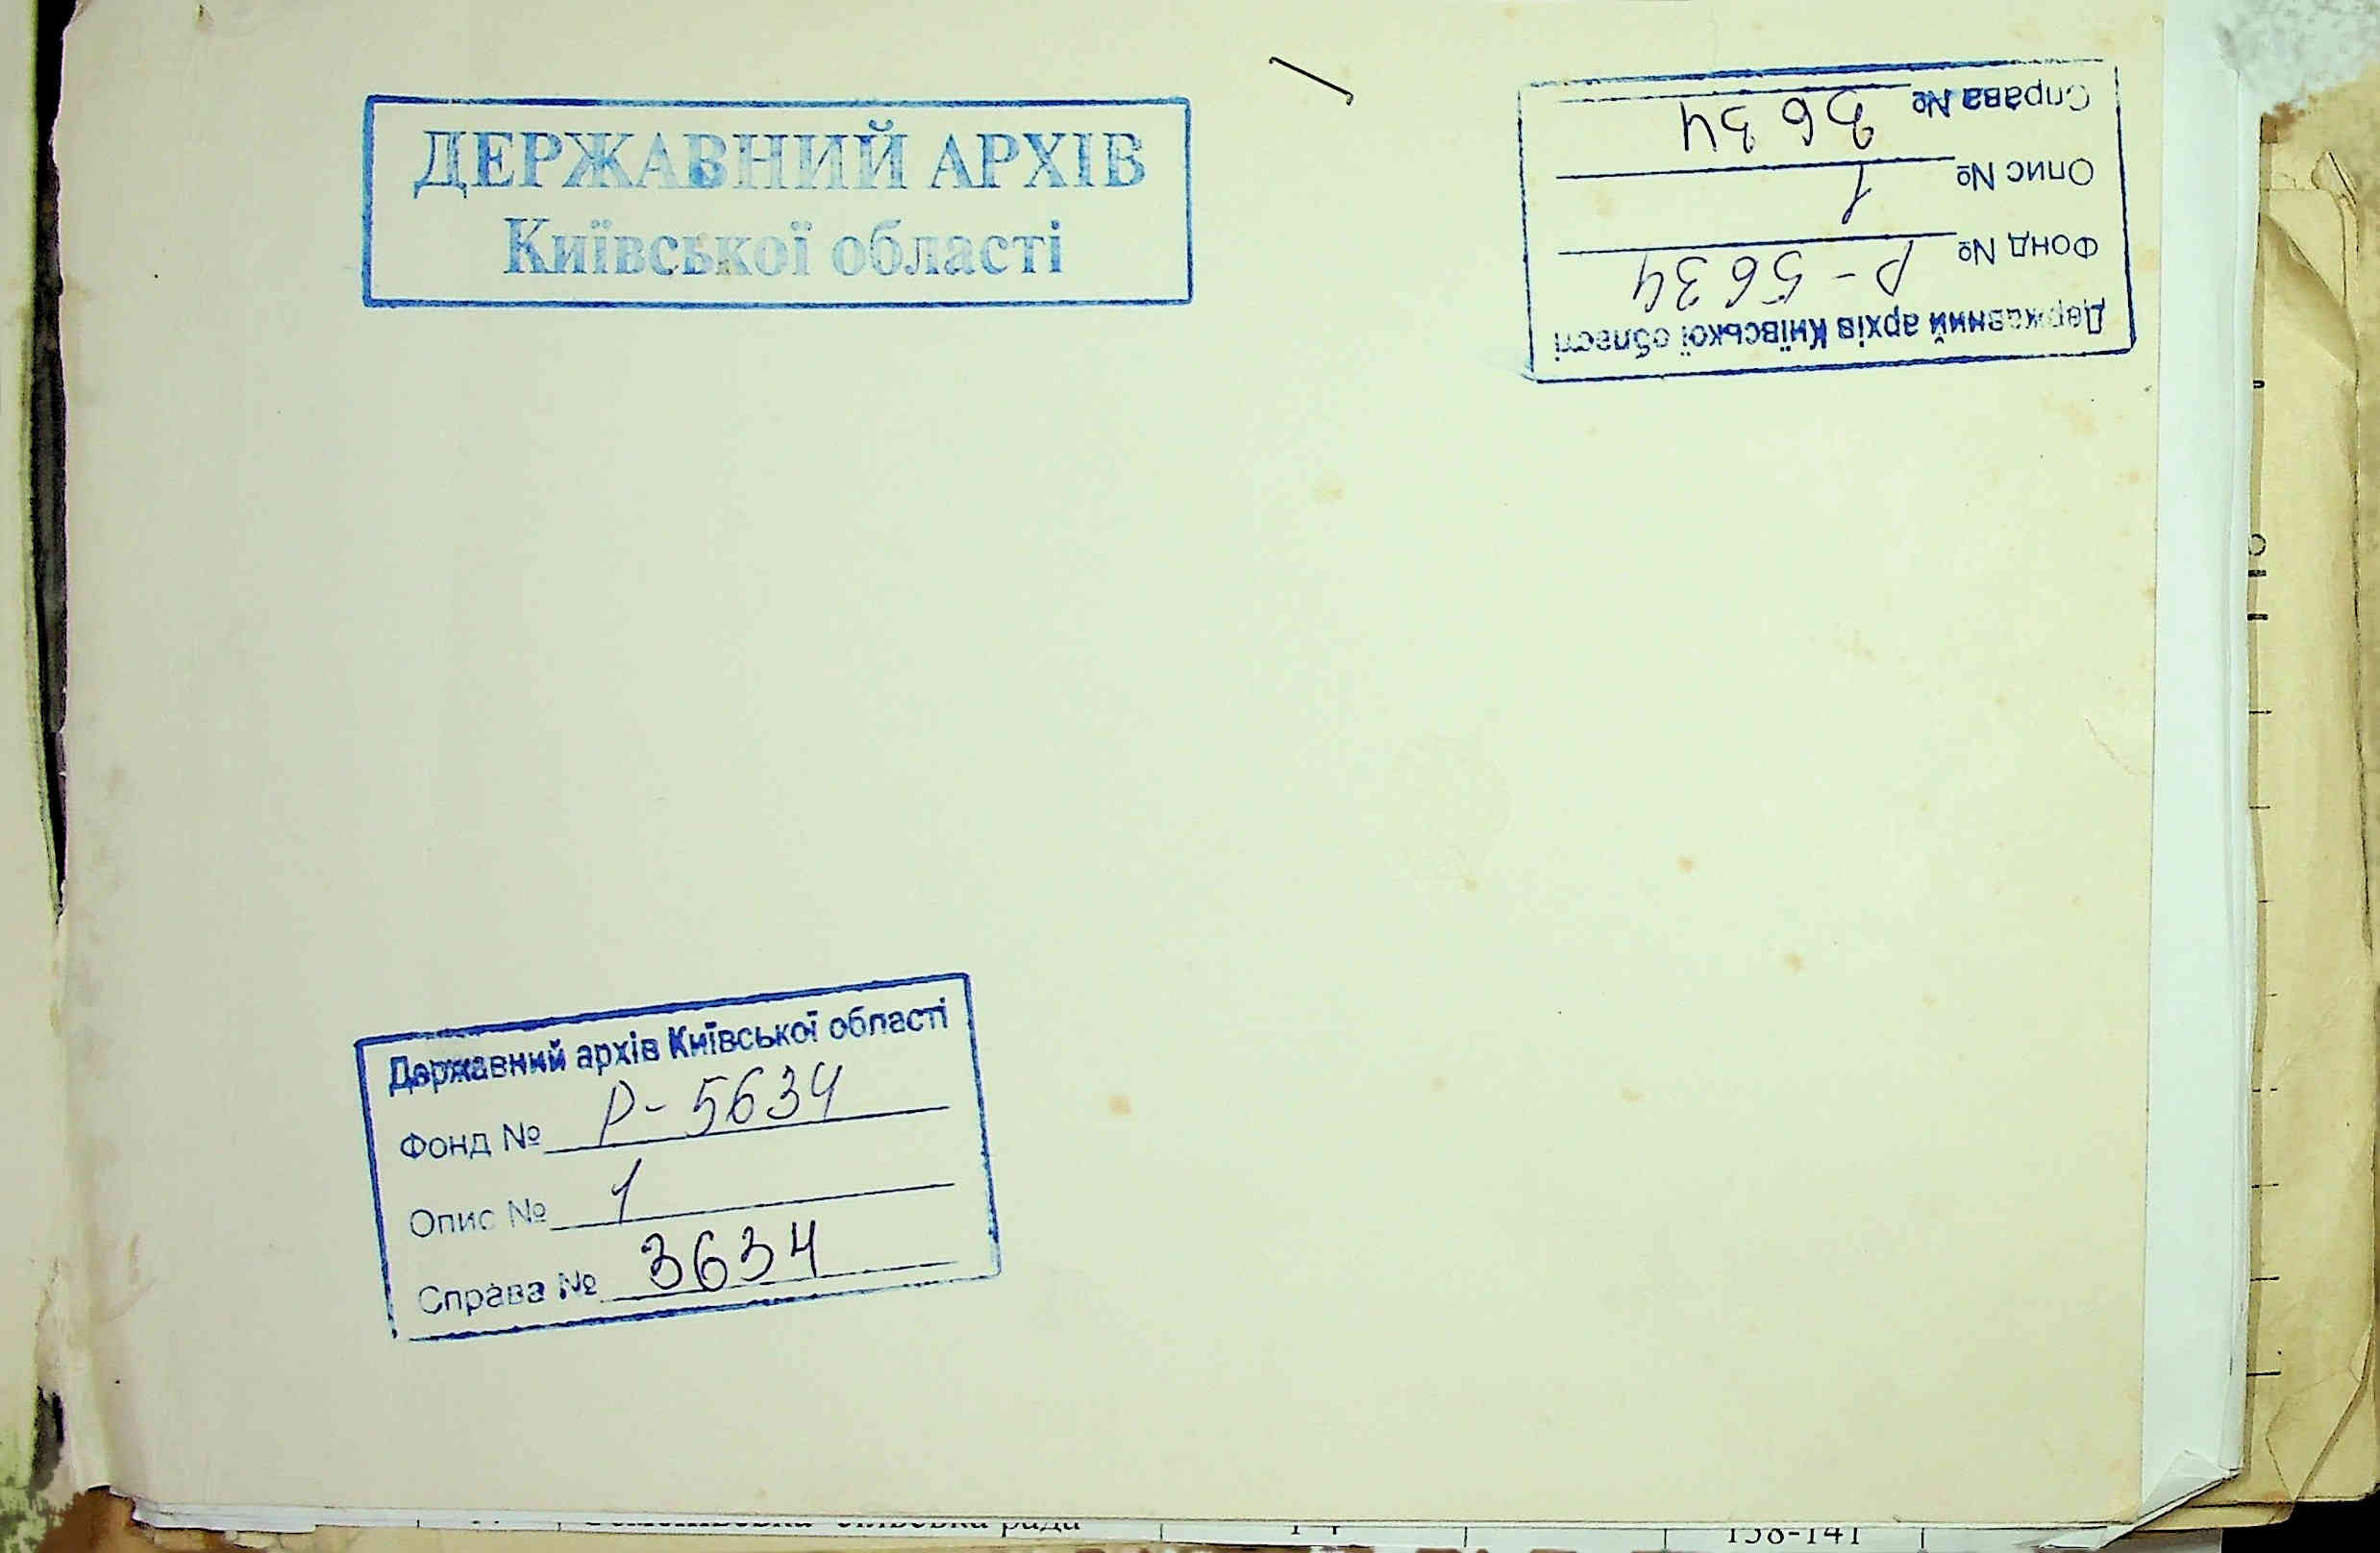 ДЕРЖАВНИЙ АРХІВ
Київської області
Державний архів Київської області
Фонд № Р-5634
Опис № 1
Справа № 3634
Державний архів Київської області
Фонд № Р-5634
Опис № 1
Справа № 3634
сільська рада 1-4 138-141